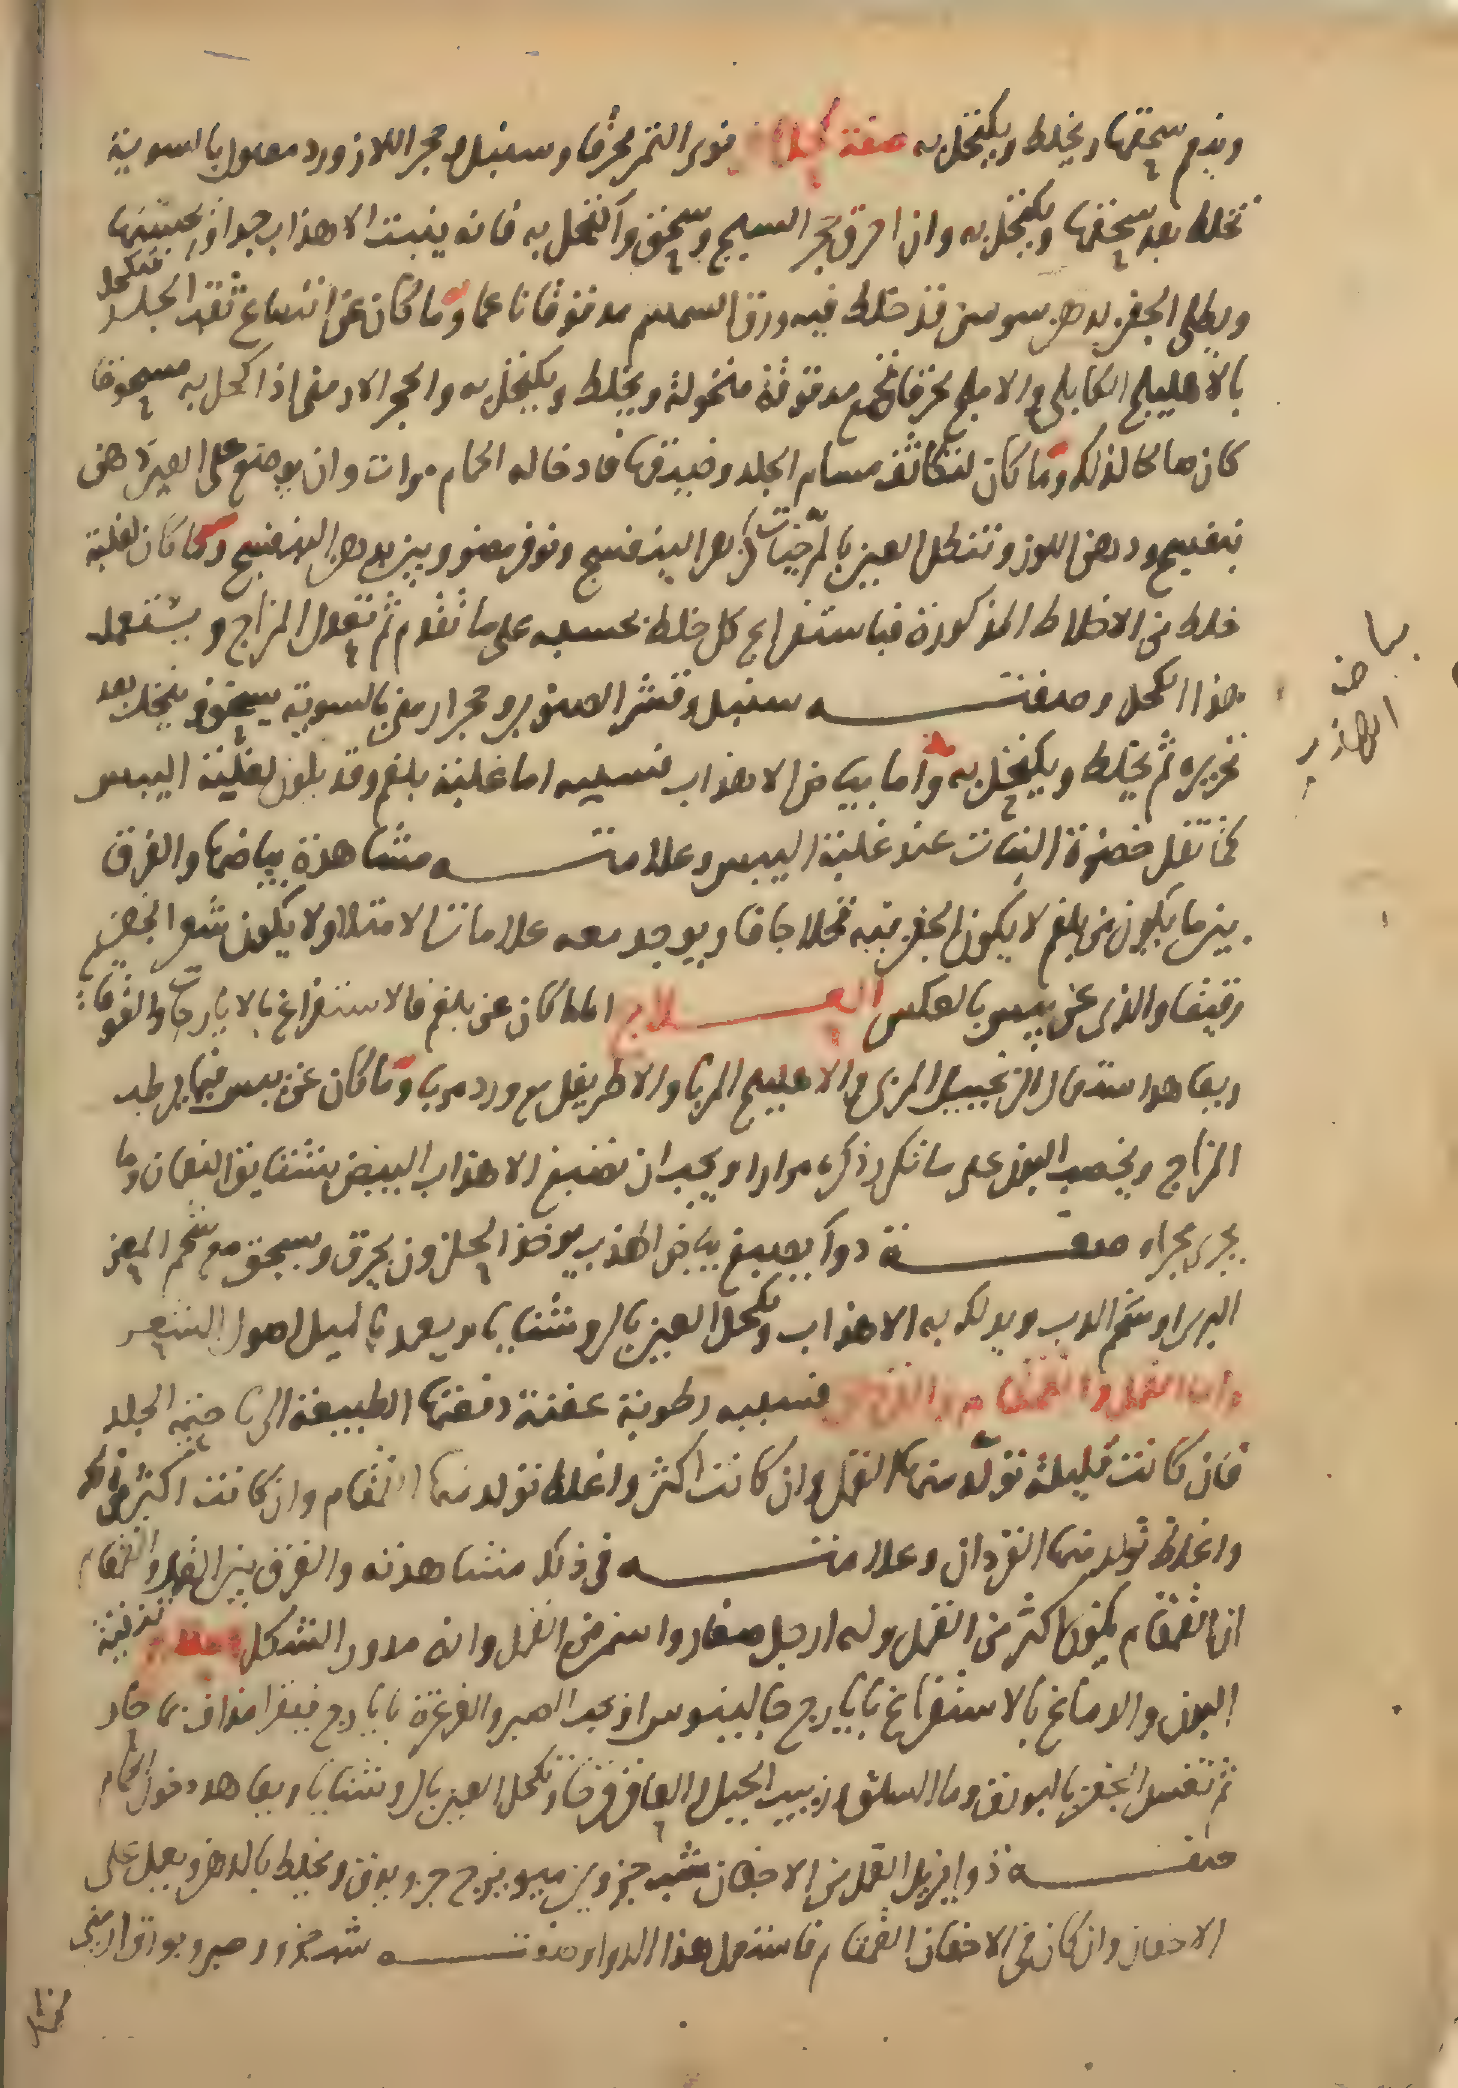 وينعم سحقها ويخلط ويكتحل به صفة كحل نوى التمر محرقا وسنبل وحجر اللازورد مغسول بالسوية
تخلط بعد سحقها ويكتحل به وان احرق حجر السبج وسحق واكتحل به فانه ينبت الاهذاب جدا
ويطلى الجفن بدهن سوسن قد خلط فيه ورق السمسم مدقوقا ناعما وما كان عن اتساع ثقب الجلد فتكحل
بالاهليلج الكابلى والاملج محرقا مدقوقة منخولة ويخلط ويكتحل به والحجر الارمنى اذا اكحل به مسحوقا
كان صالحا لذلك وما كان لتكاثف مسام الجلد وضيقها فادخاله الحمام مرات وان يوضع على العين دهن
بنفسج ودهن اللوز وتكحل العين بالمرخيات بنفسج وبدهن البنفسج وما كان لغلبة
خلط من الاخلاط المذكورة فباستفراغ كل خلط بحسبه على ما تقدم ثم تعدل المزاج ويستعمل
هذا الكحل وصفته سنبل وقشر الصنوبر وحجر ارمنى بالسوية يسحق وينخل بعد
تحريره ثم يخلط ويكتحل به واما بياض الاهذاب فسببه اما غلبة بلغم وقد يكون لغلبة اليبس
كما تقل خضرة النبات عند غلبة اليبس وعلامته مشاهدة بياضها والفرق
بين ما يكون من بلغم لا يكون الجفن فيه قحلا جافا ويوجد معه علامات الامتلا ولا يكون شعر الجفن
رقيقا والذى عن يبس بالعكس العلاج اما ما كان عن بلغم فالاستفراغ بالايارجات والقوقايا
ويعاهد استعمال الزنجبيل المربى والاهليلج المربا والاطريفل مع ورد مربا وما كان عن يبس فيما يرطب
المزاج ويخصب البدن على ما تكرر ذكره مرارا ويجب ان تصبغ الاهذاب البيض بشقايق النعمان وما
يجرى مجراه صفة دوآ يصبغ بياض الهذب يوخذ الحلزون يحرق ويسحق مع شحم المعز
البرى او شحم الدب ويدلك به الاهذاب وتكحل العين بالروشنايا ويعمد بالميل اصول الشعر
واما القمل والقمقام والقردان فسببه رطوبة عفنة دفعتها الطبيعة الى ناحية الجلد
فان كانت قليلة تولد منها القمل وان كانت اكثر واغلظ تولد منها القمقام وان كانت اكثر من ذلك
واغلظ تولد منها القردان وعلامته فى ذلك مشاهدته والفرق بين القمل والقمقام
ان القمقام يكون اكثر من القمل وله ارجل صغار واسمن من القمل وانه مدور الشكل العلاج تنقية
البدن والدماغ بالاستفراغ بايارج جالينوس او بحب الصبر والغرغرة بايارج فيقرا مداف بما حار
ثم تغسل الجفن بالبورق وما السلق وزبيب الجبل والعاقر قرحا وتكحل العين بالروشنايا ويعاهد دخول الحمام
صفة دوا يزيل القمل من الاجفان شب جزوين ميويزج جزو يدق ويخلط بالدهن ويعمل على
الاجفان وان كان فى الاجفان القمقام فاستعمل هذا الدوا وصفته شب جزو وصبر وبورق ارمنى
بياض
الاهذاب